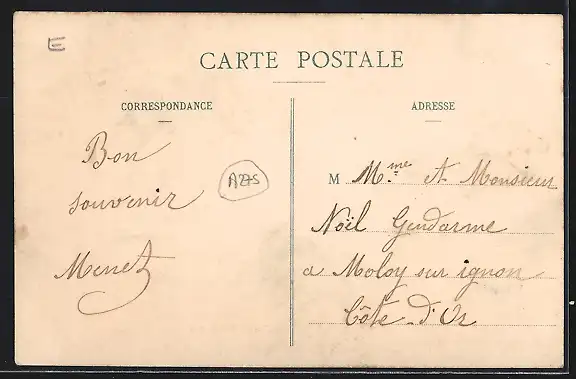 E
CARTE POSTALE
CORRESPONDANCE
Bon
souvenir
Menet
ADRESSE
M Mme et Monsieur
Noël Gendarme
a Moloy sur ignon
Côte-d'Or